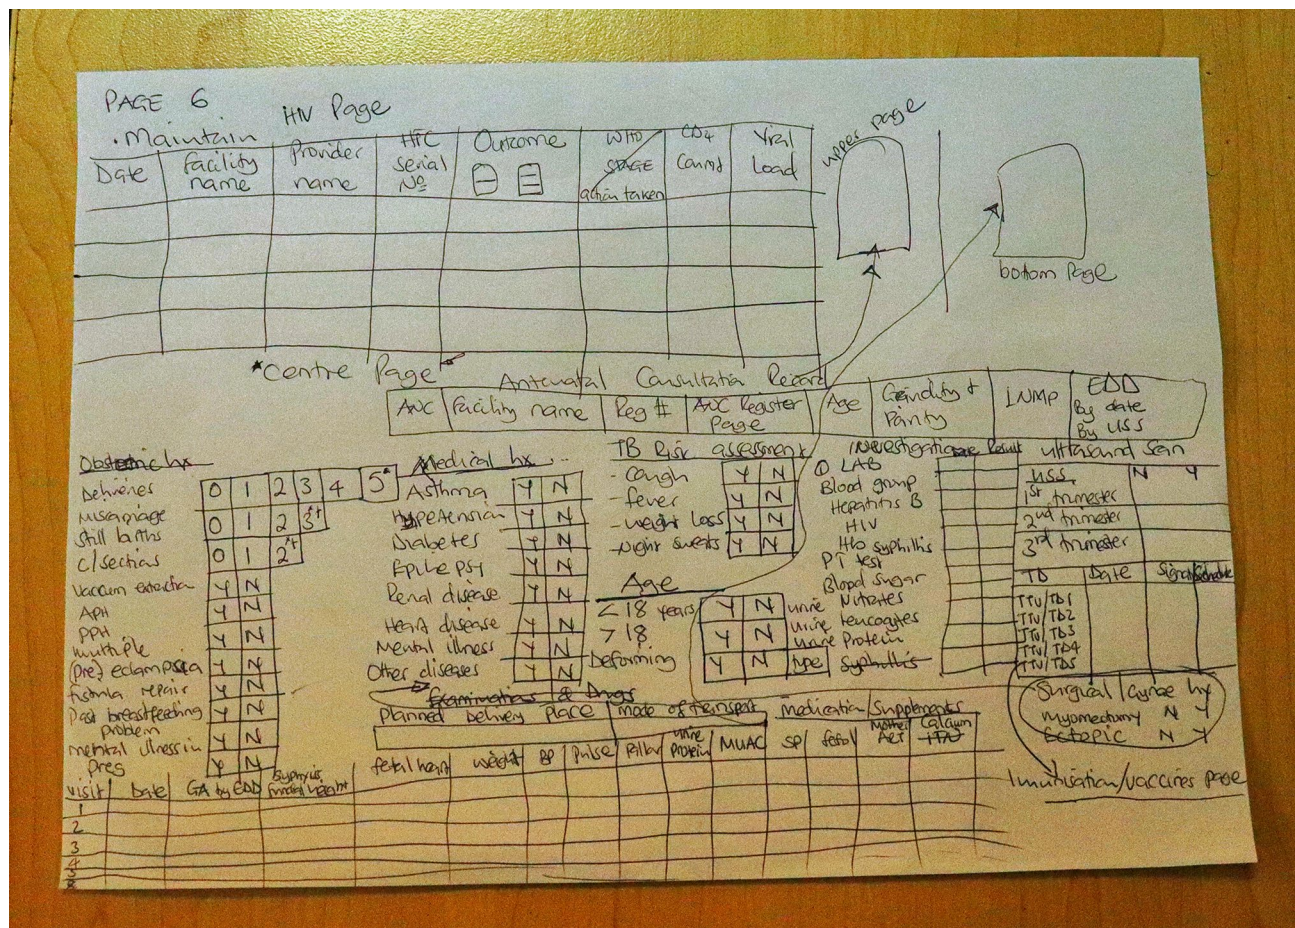 PAGE 6
HIV Page
· Maintain
Date Facility name Provider name HTC Serial No Outcome WHO STAGE action taken CD4 Count Viral Load
upper page
bottom Page
*Centre Page*
Antenatal Consultation Record
ANC Facility name Reg # ANC Register Page Age Gravidity + Parity LNMP EDD
By date
By USS
Obstetric hx
Deliveries 0 1 2 3 4 5+
Miscarriage 0 1 2 3+
Still births
C/sections 0 1 2+
Vaccum extraction Y N
APH Y N
PPH Y N
multiple
(Pre) eclampsia Y N
fistula repair Y N
Past breastfeeding problem Y N
mental illness in Preg Y N
Y N
Medical hx
Asthma Y N
Hypetension Y N
Diabetes Y N
Epilepsy Y N
Renal disease Y N
Heart disease Y N
Mental illness Y N
Other diseases Y N
TB Risk assessment
- cough Y N
- fever Y N
- weight loss Y N
- Night sweats Y N
Age
< 18 years Y N
> 18 Y N
Deforming Y N
Investigations Result
① LAB
Blood group
Hepatitis B
HIV
Hb syphillis
PT test
Blood sugar
urine Nitrates
urine leucocytes
urine Protein
type Syphillis
ultrasound Scan
USS N Y
1st trimester
2nd trimester
3rd trimester
TD Date Schedule
TTV/TD1
TTV/TD2
TTV/TD3
TTV/TD4
TTV/TD5
Surgical/Gynae hx
myomectomy N Y
Ectopic N Y
Immunisation/vaccines page
Examinations & Drugs
Planned Delivery Place mode of transport medication/Supplements
visit Date GA by EDD Syphylis fundal height fetal heart weight BP Pulse Pallor urine Protein MUAC SP fefol Mother ART Calcium
1
2
3
4
5